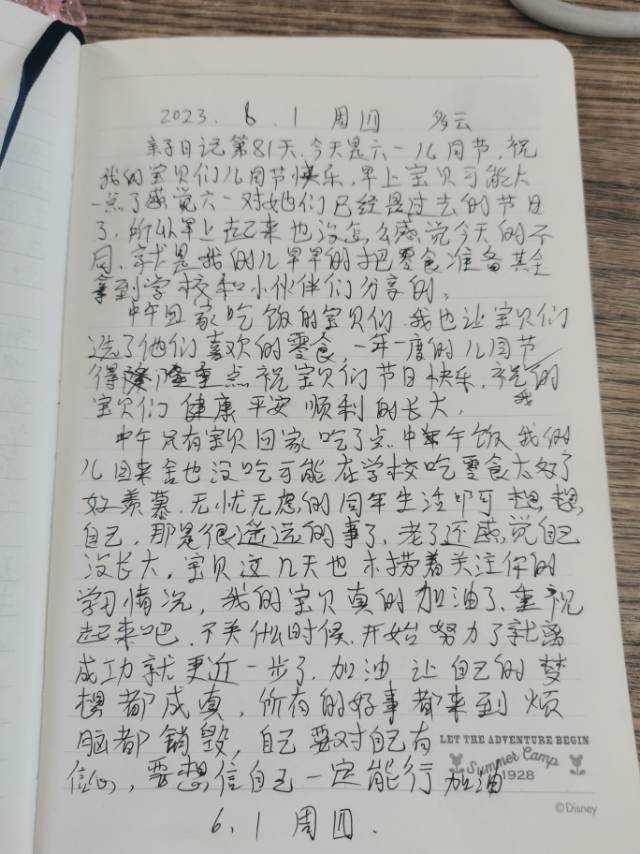 2023. 6. 1 周四 多云
亲子日记第81天,今天是六一儿同节,祝
我的宝贝们儿同节快乐,早上宝贝可能大
一点了感觉六一对她们已经是过去的节日
了,所以早上起来也没怎么感觉今天的不
同,就是我的儿早早的把零食准备其全
拿到学校和小伙伴们分享的。
中午回家吃饭的宝贝们,我也让宝贝们
选了他们喜欢的零食,一年一度的儿同节
得隆重点祝宝贝们节日快乐,祝我的
宝贝们健康平安顺利的长大,
中午只有宝贝回家吃了点中午饭,我的
儿回来舍也没吃可能在学校吃零食太好了
好羡慕,无忧无虑的同年生活叩可想,想
自己,那是很遥远的事了,老了还感觉自己
没长大,宝贝这几天也木捞着关注你的
学习情况,我的宝贝真的加油了,重视
起来吧,不关什么时候,开始努力了就离
成功就更近一步了,加油,让自己的梦
想都成真,所有的好事都来到烦
脑都销毁,自己要对自己有
信心,要想信自己一定能行加油
LET THE ADVENTURE BEGIN
Summer Camp
1928
©Disney
6.1 周四.